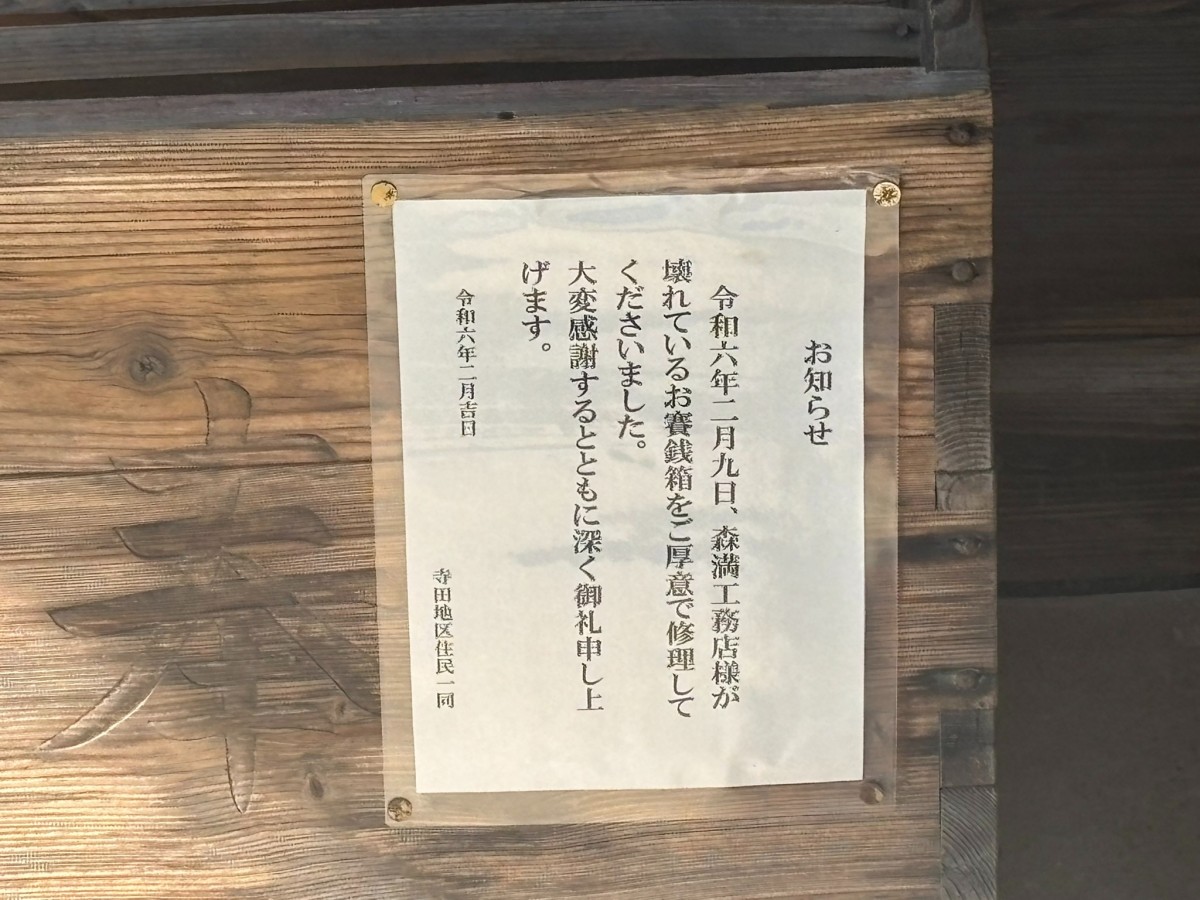 お知らせ
令和六年二月九日、森満工務店様が
壊れているお賽銭箱をご厚意で修理して
くださいました。
大変感謝するとともに深く御礼申し上
げます。
令和六年二月吉日
寺田地区住民一同
奉